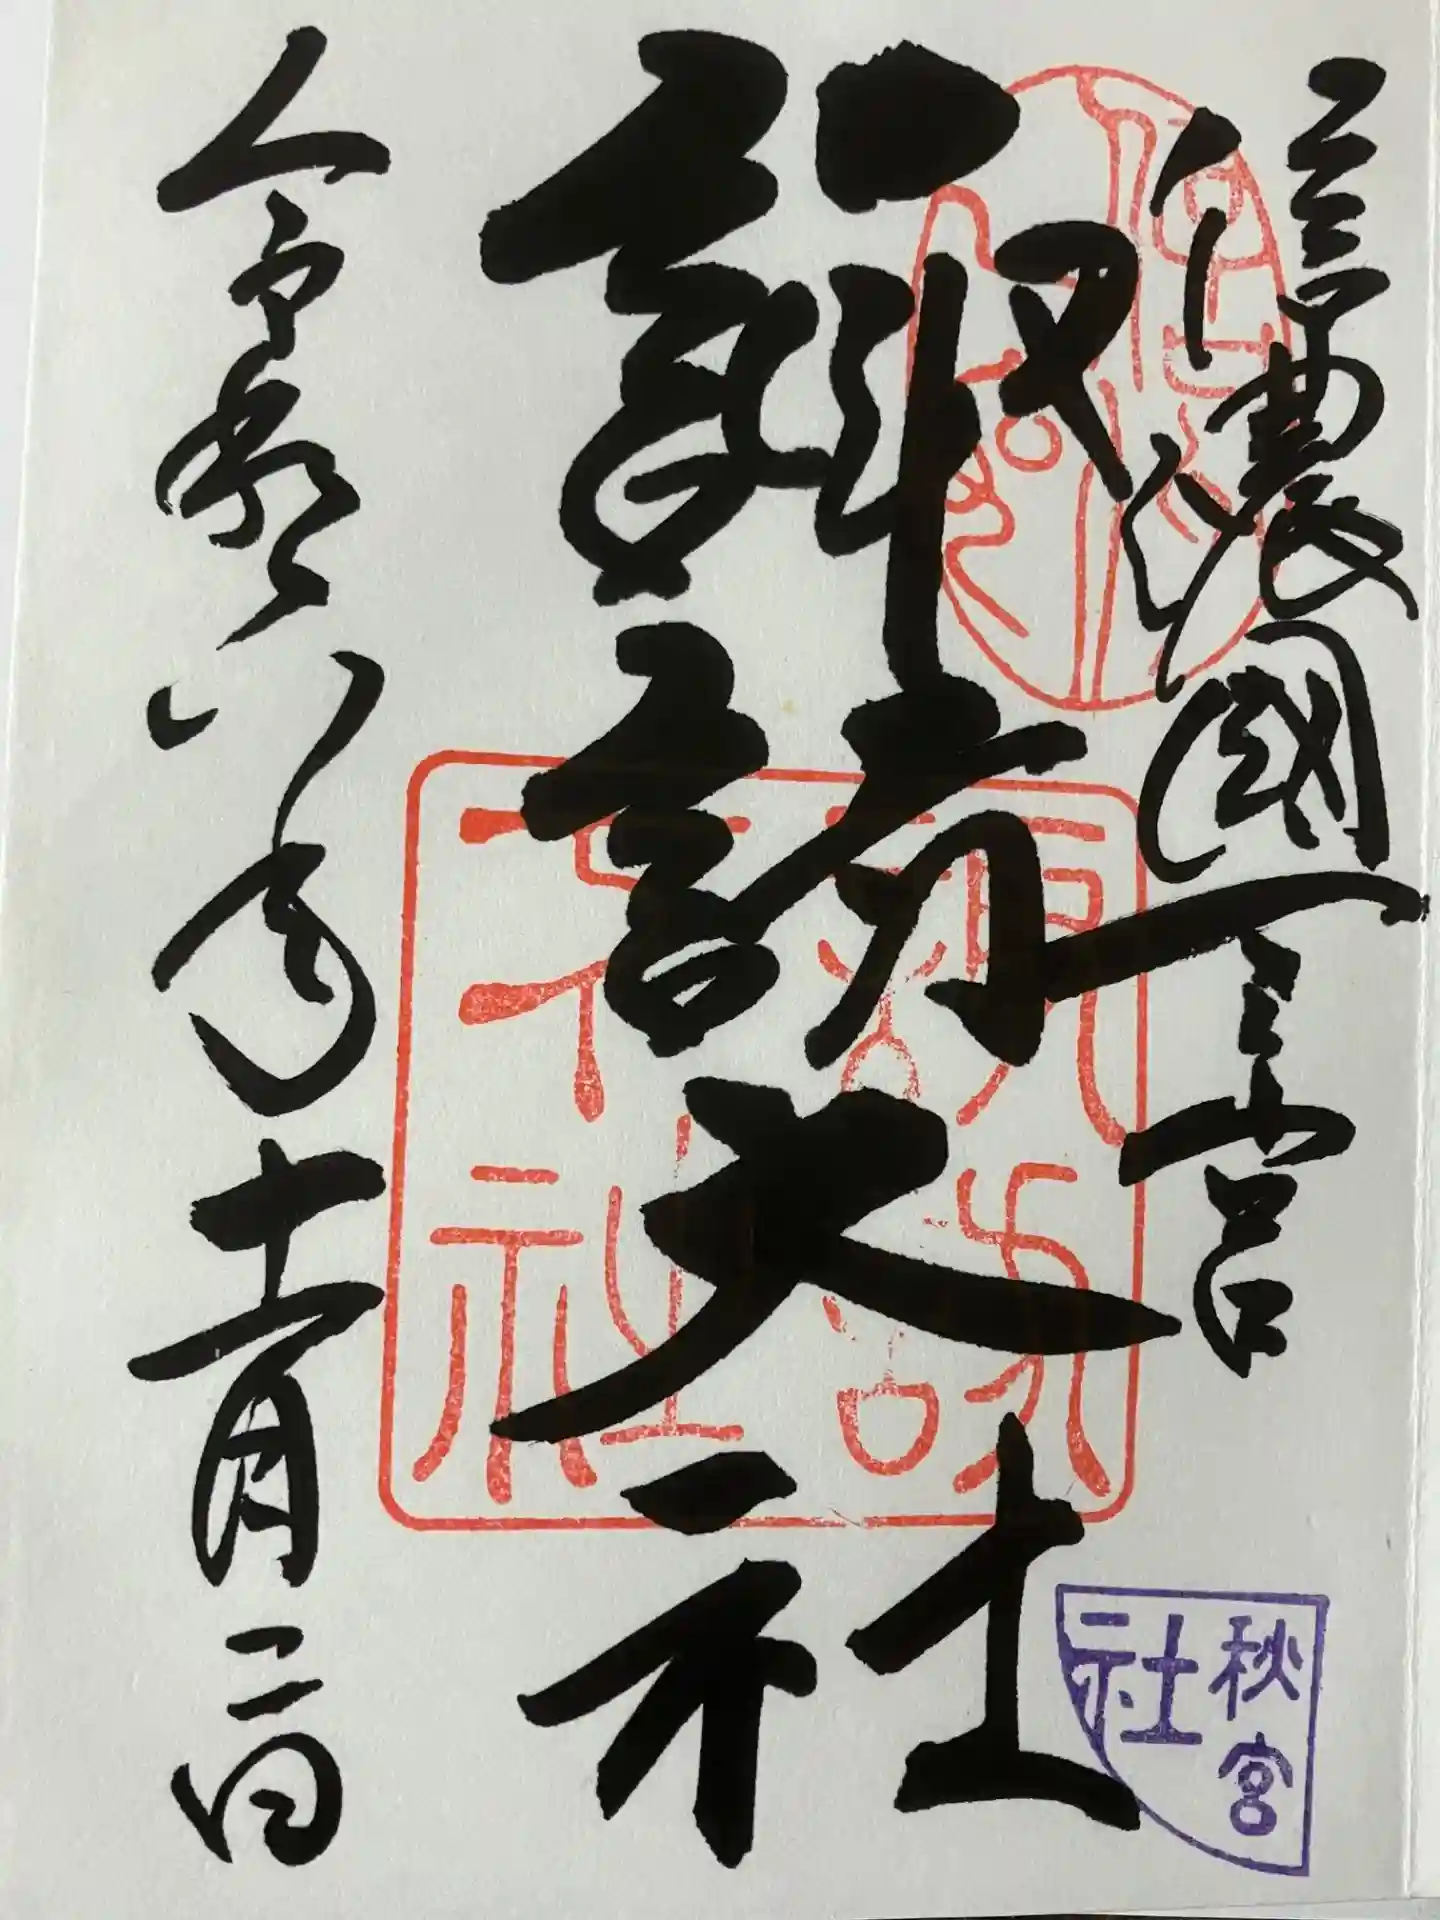 信濃國一之宮
諏訪大社
令和六年十一月二日
秋宮
社